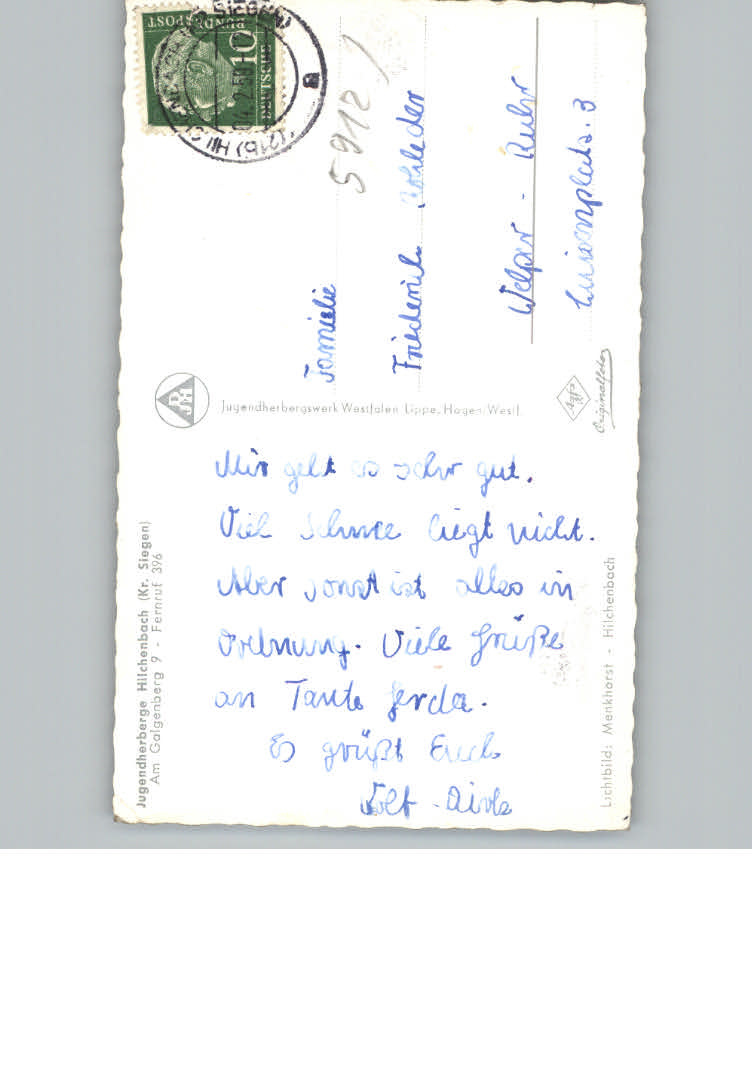 DEUTSCHE
BUNDESPOST
10
5912
Familie
Friederich
Welper - Ruhr
3
DJH
Jugendherbergswerk Westfalen Lippe, Hagen/Westf.
Agfa
Originalfoto
Mir geht es sehr gut.
Viel Schnee liegt nicht.
Aber sonst ist alles in
Ordnung. Viele Grüße
an Tante Gerda.
Es grüßt Euch
Jugendherberge Hilchenbach (Kr. Siegen)
Am Galgenberg 9 - Fernruf 396
Lichtbild: Menkhorst - Hilchenbach